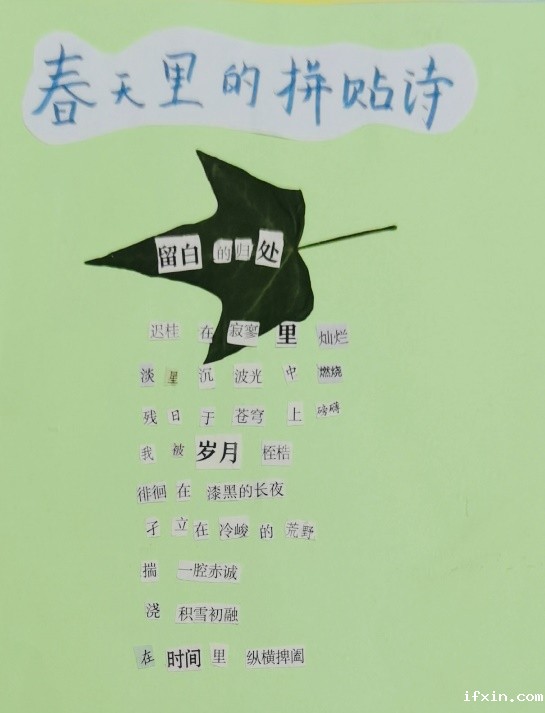 春天里的拼贴诗
留白的归处
迟桂在寂寥里灿烂
淡星沉波光中燃烧
残日于苍穹上磅礴
我被岁月桎梏
徘徊在漆黑的长夜
孑立在冷峻的荒野
揣一腔赤诚
浇积雪初融
在时间里纵横捭阖
ifxin.com